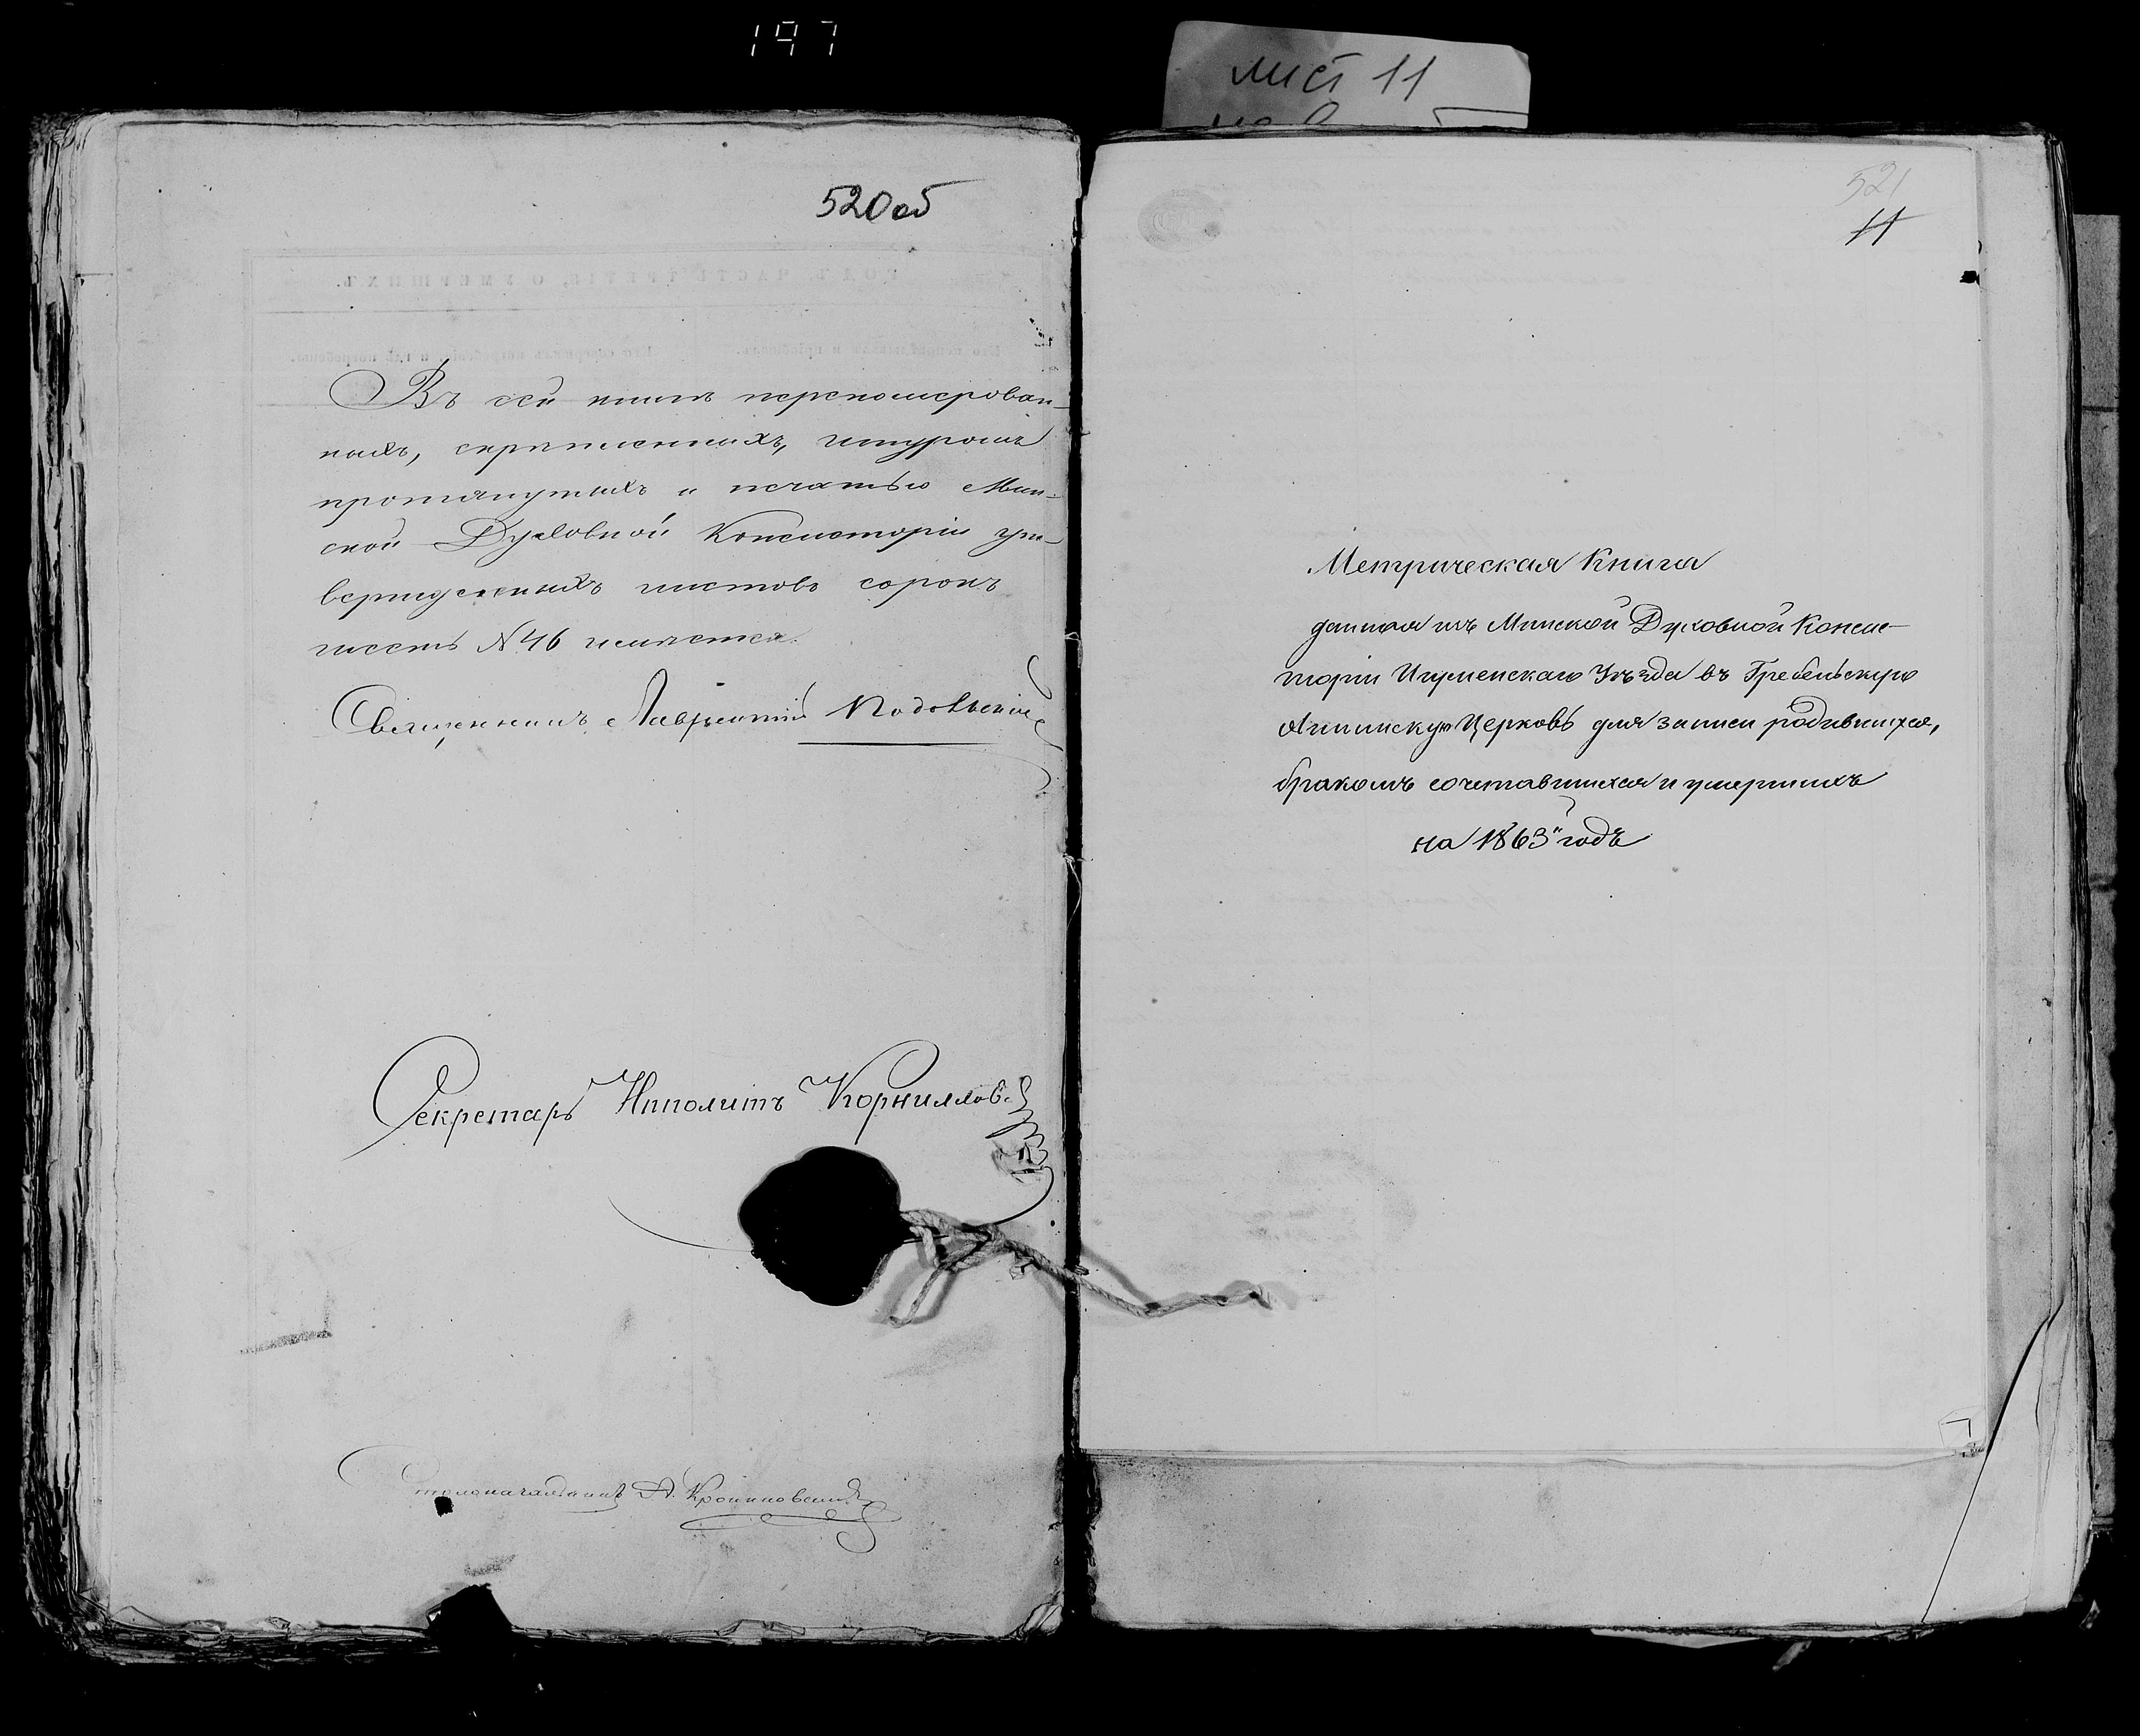 197
лист 11
520об
Въ сей книгѣ перенумерован-
ныхъ, скрѣпленныхъ, шнуромъ
протянутыхъ и печатью Мин-
ской Духовной Консисторіи ут-
вержденныхъ листовъ сорокъ
шесть №46 имѣется.
Священникъ Лаврентій Подольскій
Секретарь Ипполитъ Корниловъ
Столоначальникъ А.
521
11
Метрическая Книга
данная изъ Минской Духовной Конси-
торіи Игуменскаго Уѣзда въ Гребеньскую
Церковь для записи родившихся,
бракомъ сочетавшихся и умершихъ
на 1863й годъ